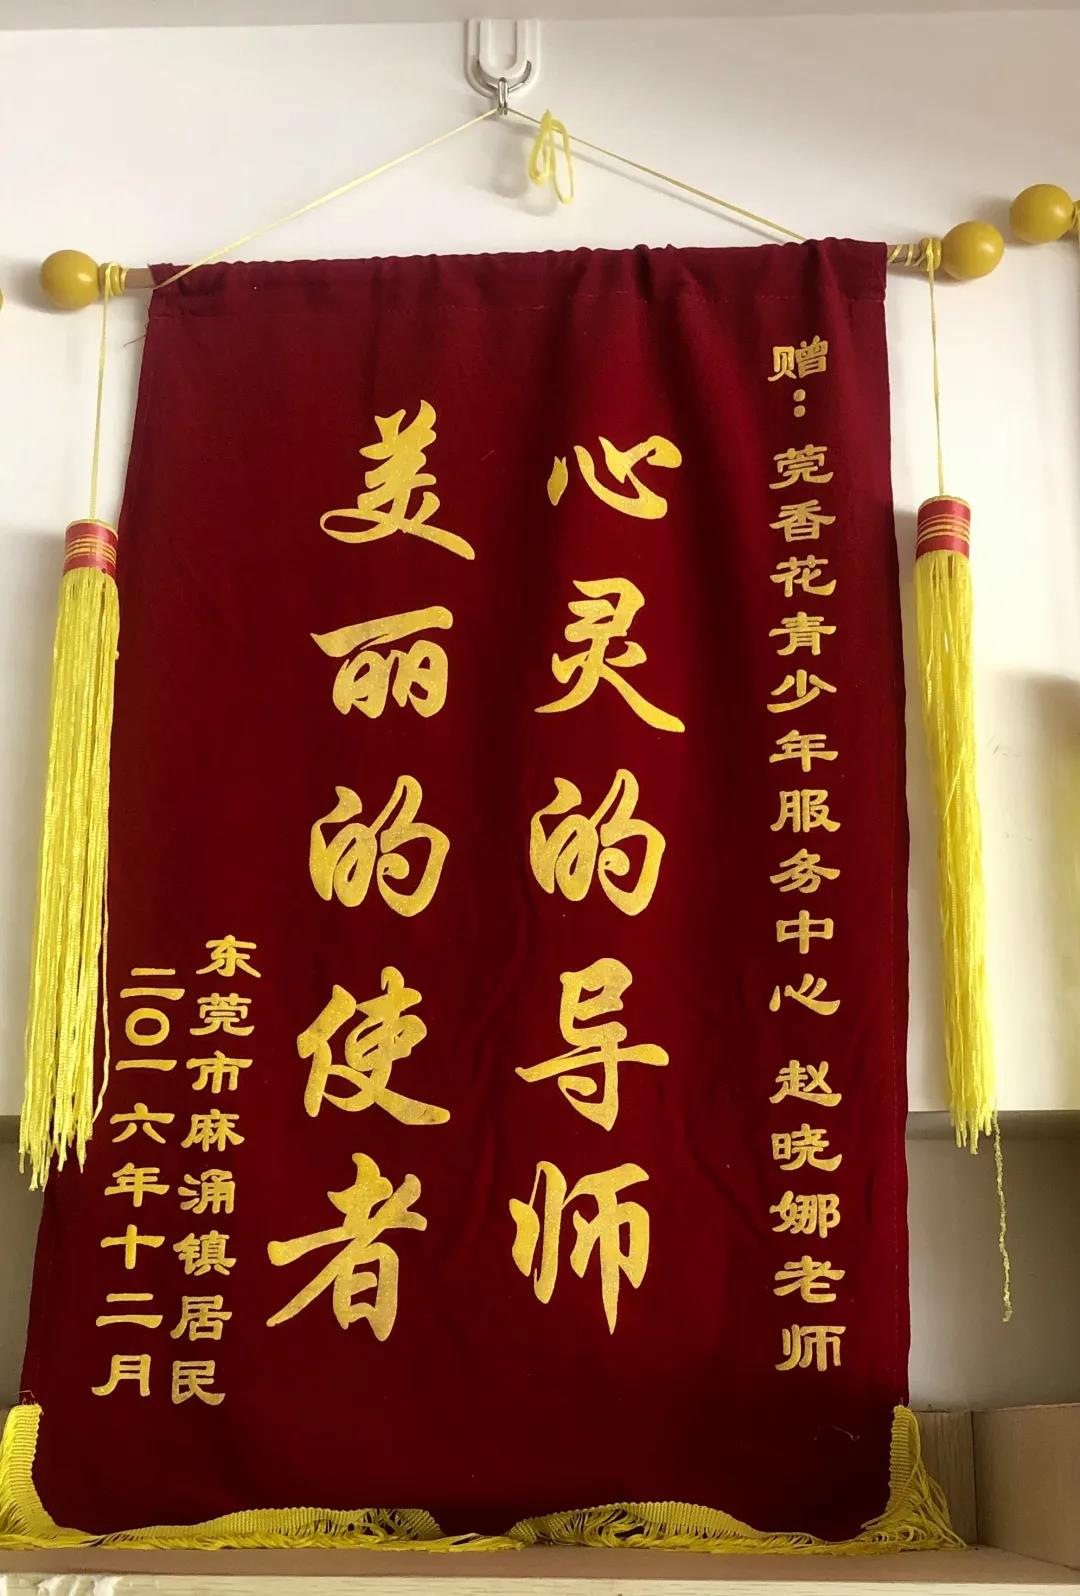 赠：莞香花青少年服务中心 赵晓娜老师
心灵的导师
美丽的使者
东莞市麻涌镇居民
二〇一六年十二月